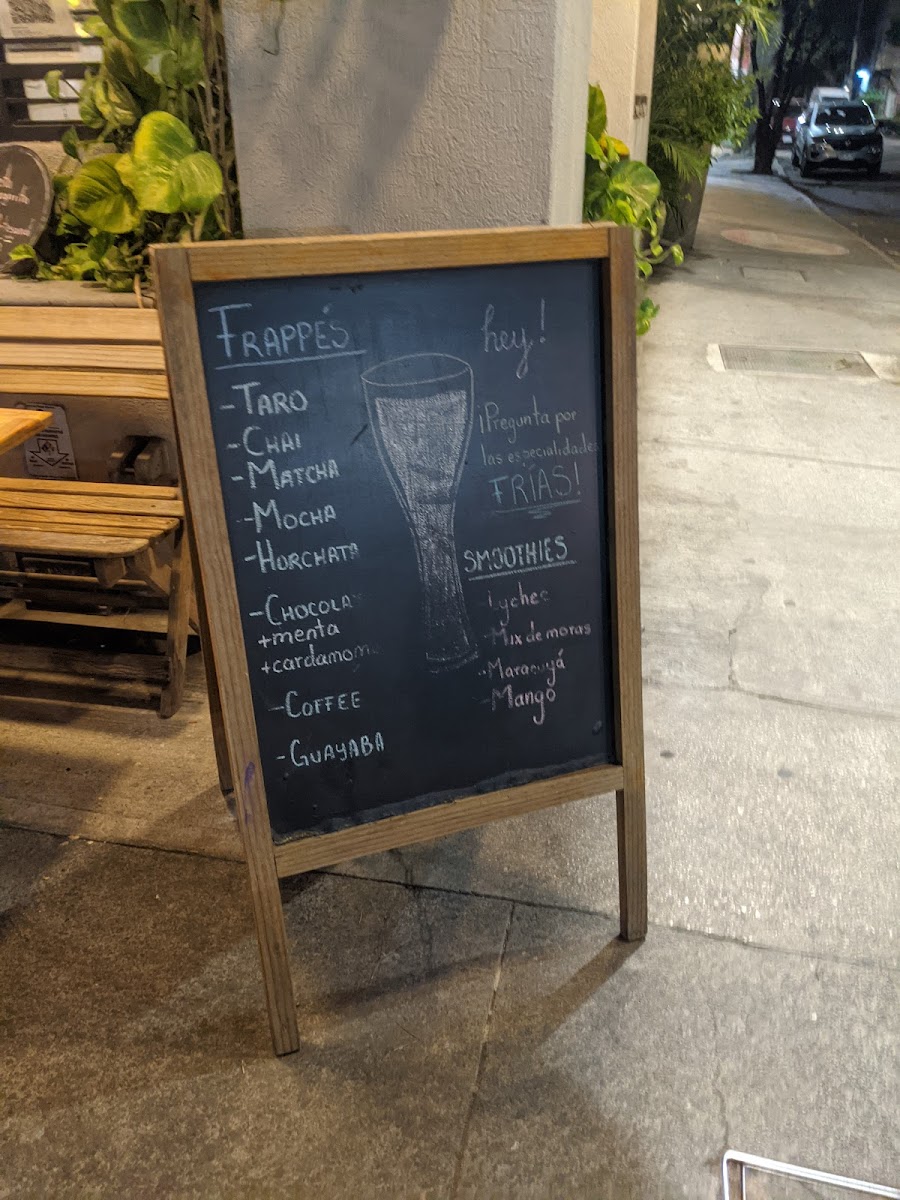 FRAPPÉS
-TARO
-CHAI
-MATCHA
-MOCHA
-HORCHATA
-CHOCOLA
+menta
+cardamomo
-COFFEE
-GUAYABA
hey!
¡Pregunta por
las especialidades
FRÍAS!
SMOOTHIES
Lychee
-Mix de moras
-Maracuyá
-Mango